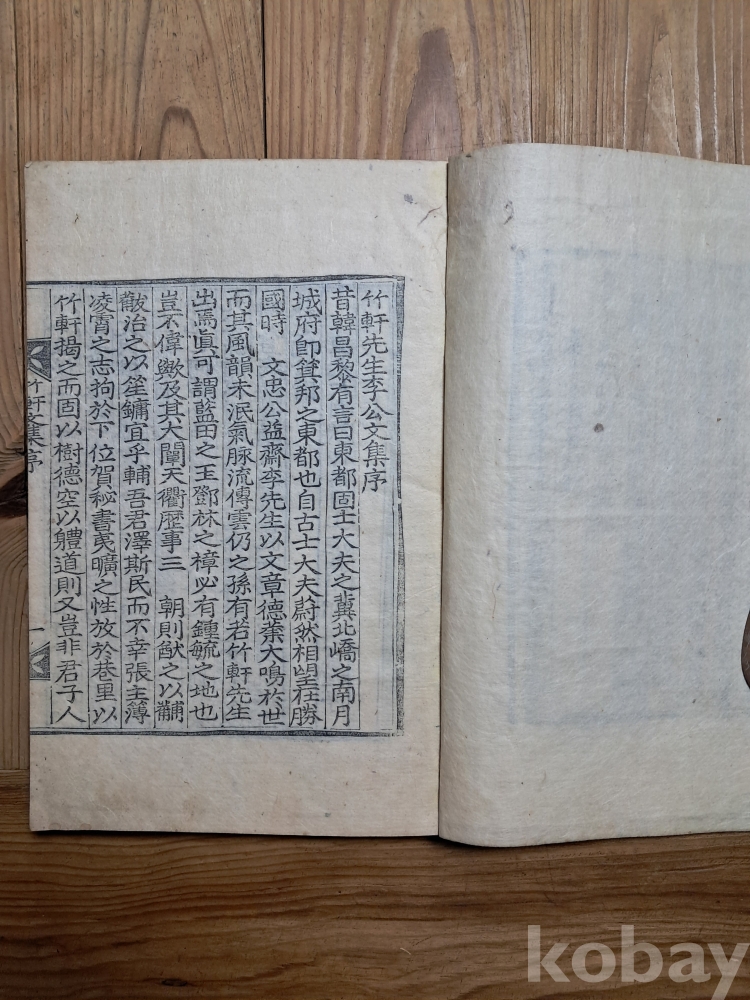 竹軒先生李公文集序
昔韓昌黎有言曰東都固士大夫之冀北嶠之南月
城府卽箕邦之東都也自古士大夫蔚然相望在勝
國時 文忠公益齋李先生以文章德業大鳴於世
而其風韻未泯氣脉流傳雲仍之孫有若竹軒先生
出焉眞可謂藍田之玉鄧林之樟必有鍾毓之地也
豈不偉歟及其大闡天衢歷事三 朝則猷之以黼
黻冶之以笙鏞宜乎輔吾君澤斯民而不幸張主簿
凌霄之志拘於下位賀秘書夷曠之性放於巷里以
竹軒揚之而固以樹德空以軆道則又豈非君子人
竹軒文集序
一
kobay